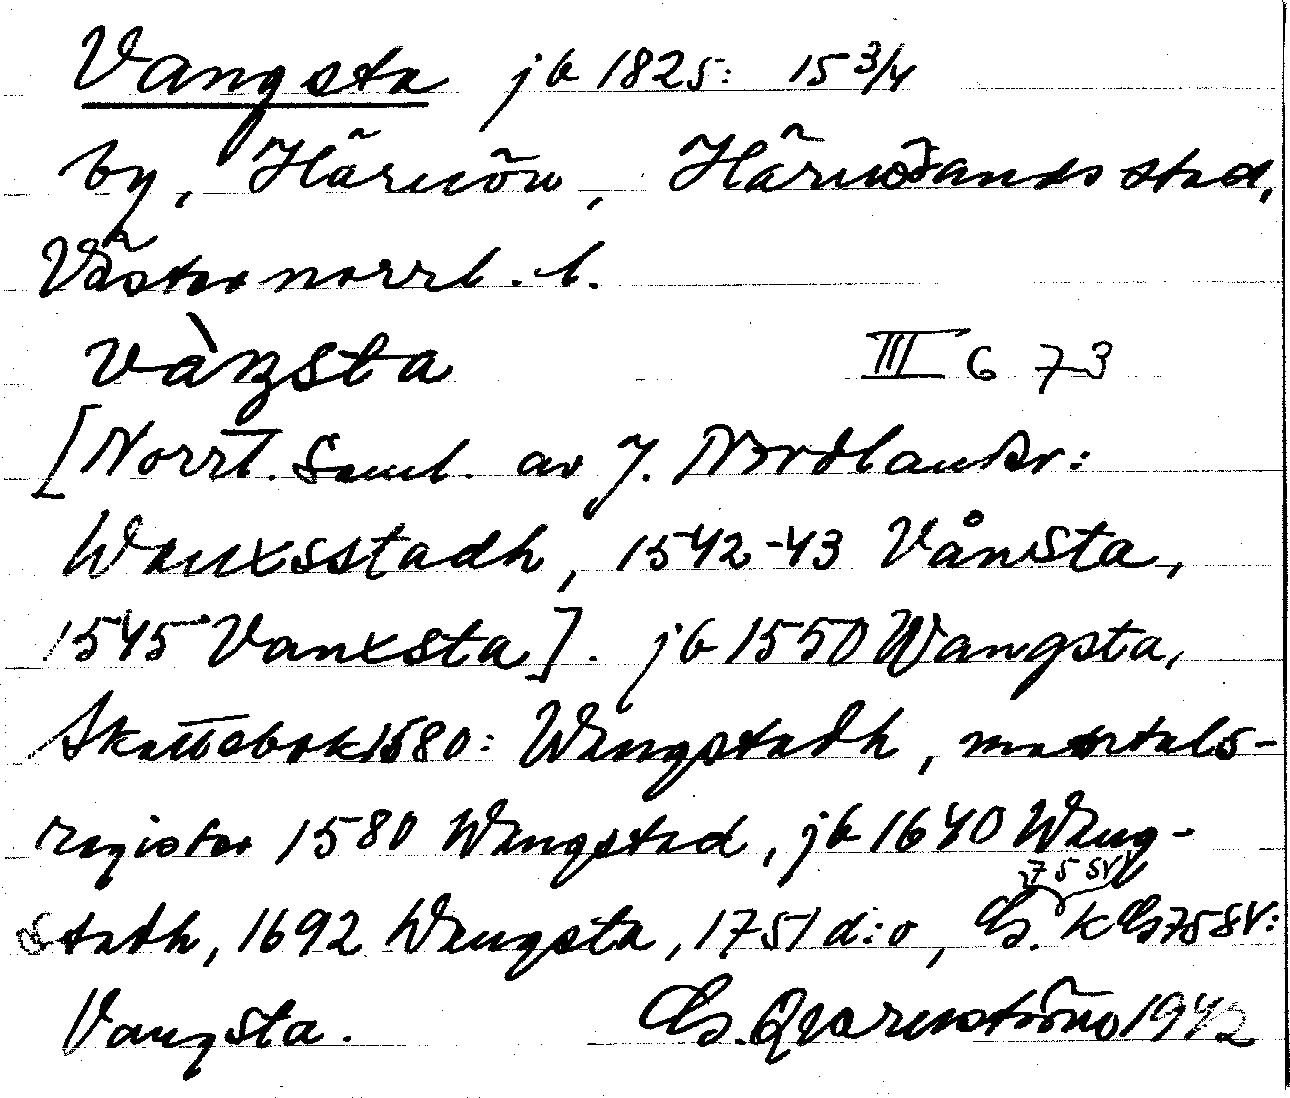 Vangsta jb 1825: 15 3/4
by, Härnön, Härnösands stad,
Västernorrl. l.
vàŋsta III 6 73
[Norrl. Saml. av J. Nordlander:
Wanxsstadh, 1542-43 Vånsta,
1545 Vanxsta]. jb 1550 Wangsta,
Skattebok 1580: Wangstadh, mantals-
register 1580 Wangstad, jb 1640 Wang-
75 SV
stadh, 1692 Wangsta, 1751 d:o, Gs. k Gs 75 SV:
Vangsta. Gs. Qvarnström 1942